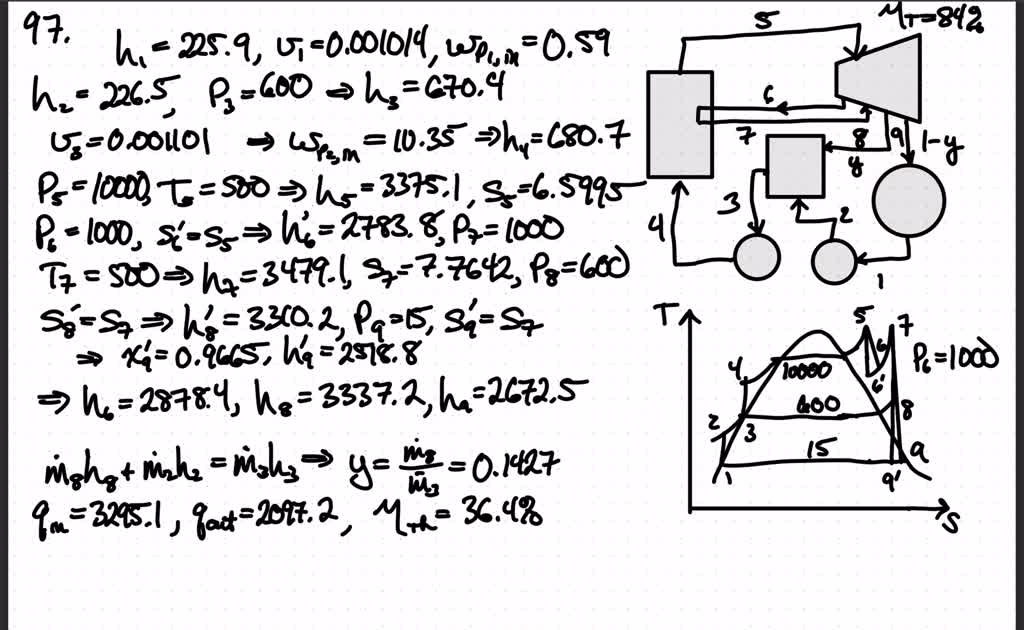 97.
h₁ = 225.9, v₁ = 0.001014, w_P1,in = 0.59
h₂ = 226.5, P₃ = 600 ⇒ h₃ = 670.4
v₃ = 0.001101 ⇒ w_P2,in = 10.35 ⇒ h₄ = 680.7
P₅ = 10000, T₅ = 500 ⇒ h₅ = 3375.1, s₅ = 6.5995
P₆ = 1000, s₆' = s₅ ⇒ h₆' = 2783.8, P₇ = 1000
T₇ = 500 ⇒ h₇ = 3479.1, s₇ = 7.7642, P₈ = 600
s₈' = s₇ ⇒ h₈' = 3310.2, P₉ = 15, s₉' = s₇
⇒ x₉' = 0.9665, h₉' = 2518.8
⇒ h₆ = 2878.4, h₈ = 3337.2, h₉ = 2672.5
ṁ₈h₈ + ṁ₂h₂ = ṁ₃h₃ ⇒ y = ṁ₈/ṁ₃ = 0.1427
q_in = 3295.1, q_out = 2097.2, η_th = 36.4%
5
η_T = 84%
6
7
8
y
9
1-y
3
2
4
1
T
5
7
6
6'
P₆ = 1000
4
10000
2
3
600
8
15
1
9'
9
s